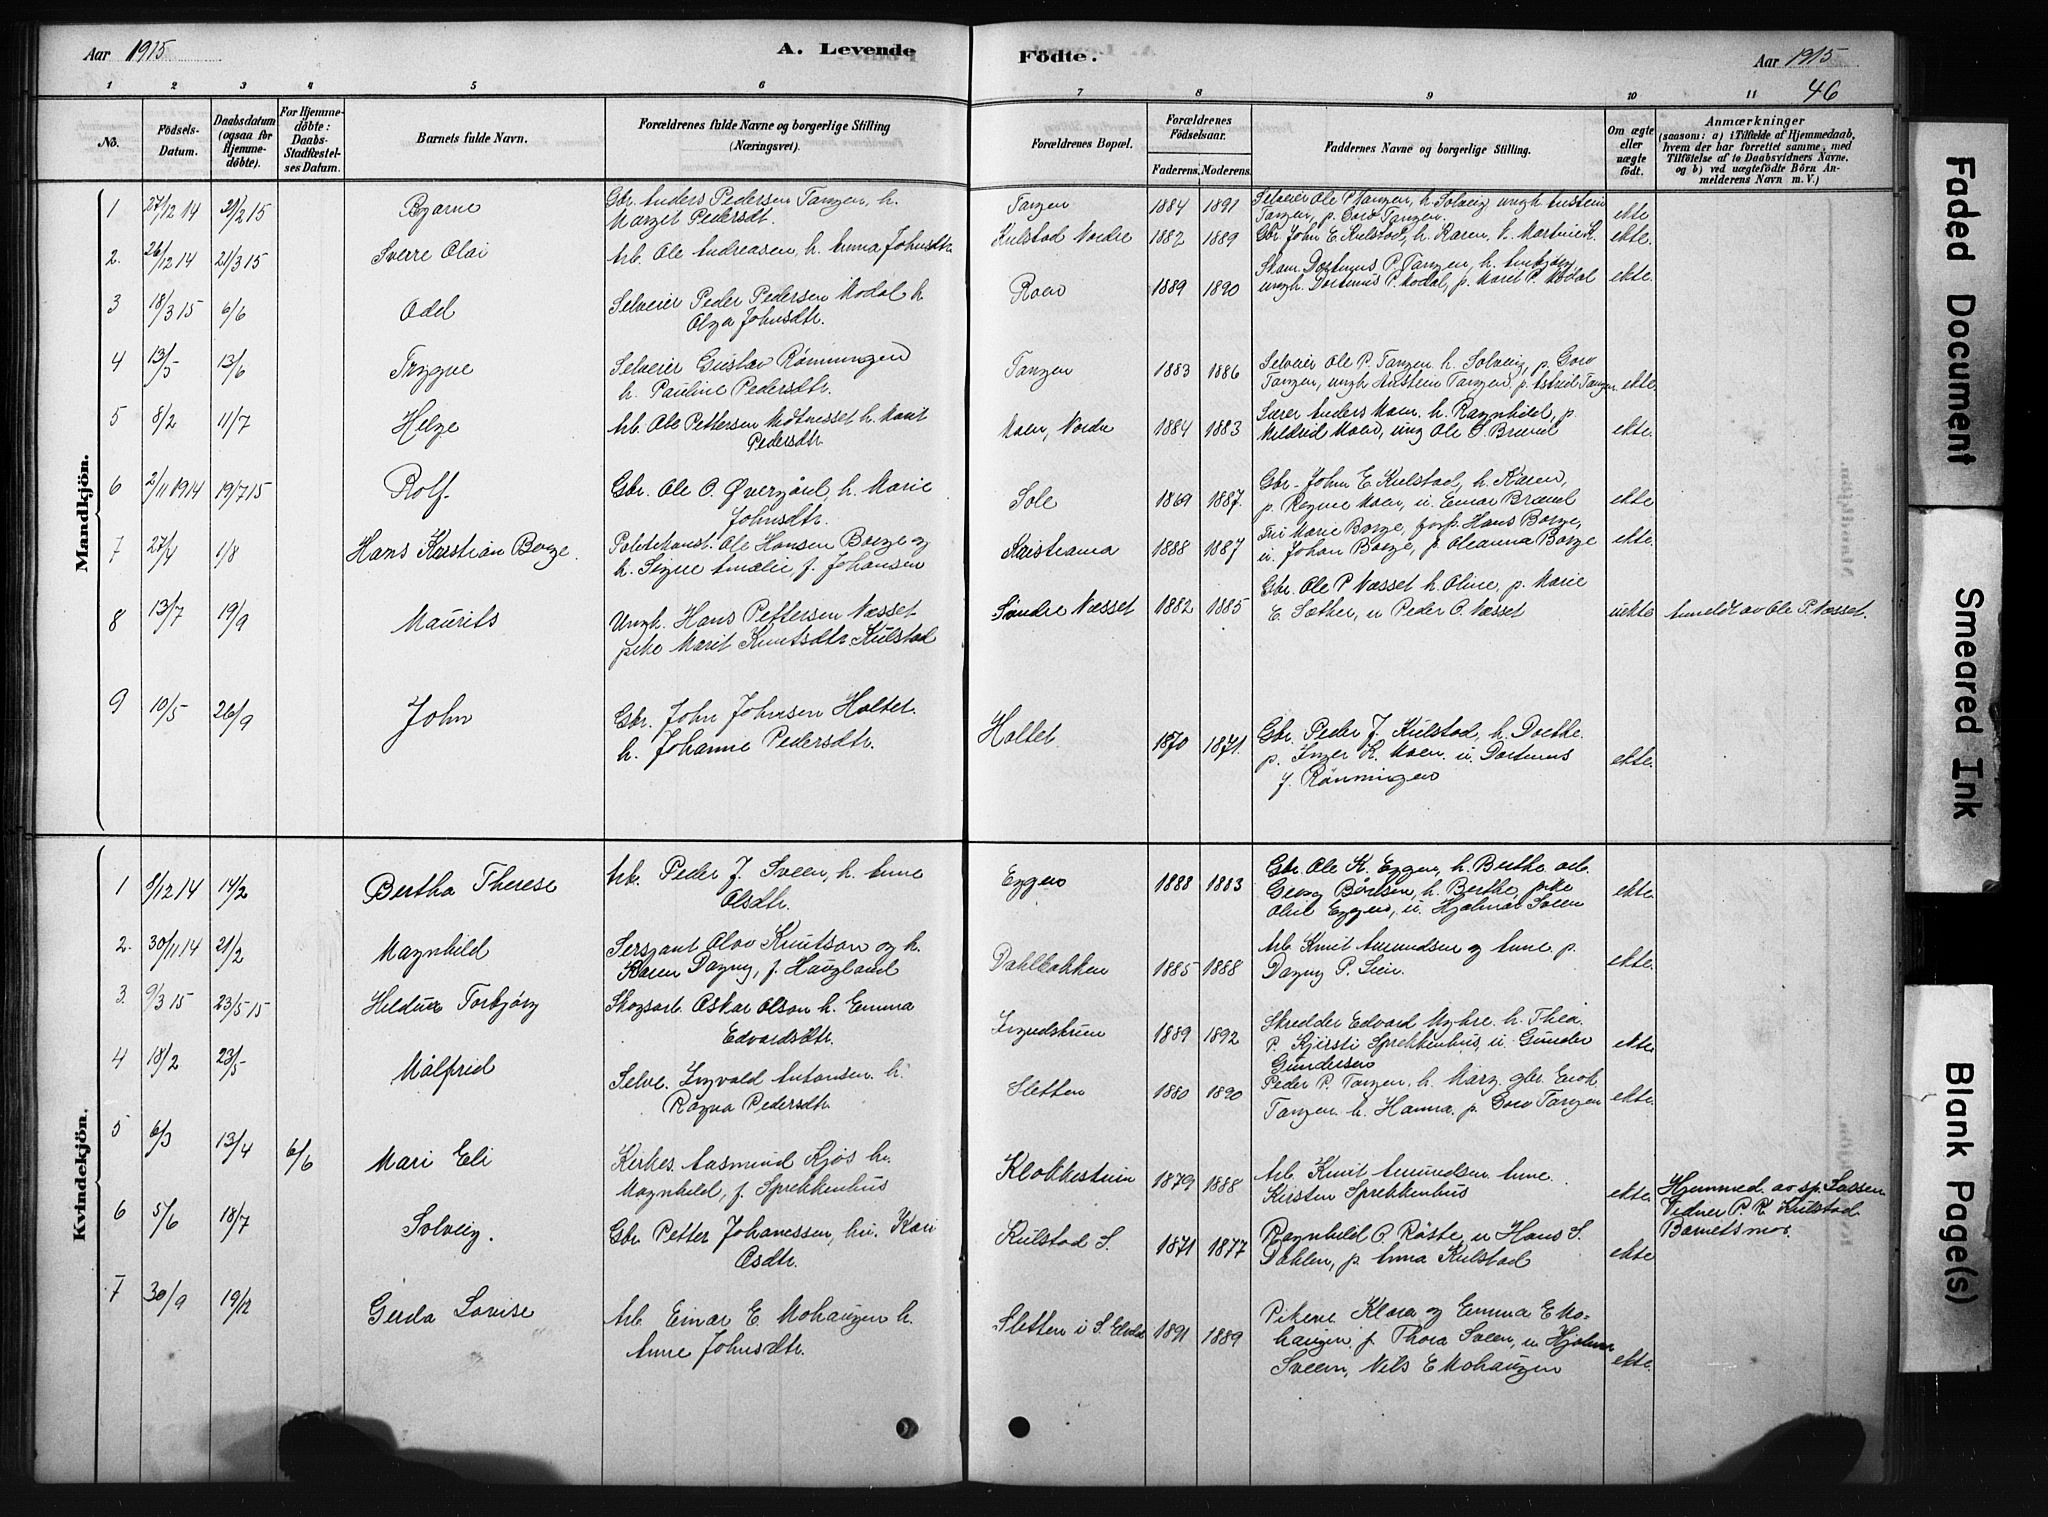 Aar 1915
A. Levende
Födte.
Aar 1915
46
1 2 3 4 5 6 7 8 9 10 11
No.
Födsels-Datum.
Daabsdatum (ogsaa for Hjemme-döbte).
For Hjemme-döbte: Daabs-Stadfæstelses Datum.
Barnets fulde Navn.
Forældrenes fulde Navne og borgerlige Stilling (Næringsvei).
Forældrenes Bopæl.
Forældrenes Födselsaar.
Faderens. Moderens.
Faddernes Navne og borgerlige Stilling.
Om ægte eller uægte födt.
Anmærkninger
(saasom: a) i Tilfælde af Hjemmedaab, hvem der har forrettet samme, med Tilföielse af to Daabsvidners Navne, og b) ved uægtefödte Börn Anmelderens Navn m. V.)
Mandkjön.
1 27/12 14 21/2 15 Bjarne Gbr. Anders Pedersen Tangen, h. Tangen 1884 1891 Selveier Ole P Tangen, h. Solveig, ungk Austein
Marget Pedersdt. Tangen, p. Goro Tangen. ekte
2. 26/12 14 21/3 15 Sverre Olai Arb. Ole Andreasen, h. Anna Johnsdtr Kulstad Nordre 1882 1889 Gbr. John E Kulstad, h. Karen, ekte.
3 18/3 15 6/6 Odd Selveier Peder Pedersen Modal h. 1889 1890 Dortenus P. Tangen, h.
Olga Johnsdtr. ungk. Dortenus P. Modal, p. Marit P. Modal ekte.
4 13/5 13/6 Trygve Selveier Gustav Rønningen Tangen 1883 1886 Selveier Ole P. Tangen h. Solveig, p. Goro
h. Pauline Pedersdtr. Tangen, ungk Austein Tangen, p. Astrid Tangen ekte.
5 8/2 11/7 Helge Arb. Ole Pettersen h. Marit Moen, Nordre 1884 1883 Anders Moen h. Ragnhild, p.
Pedersdtr Mildrid Moen, ung Ole O. ekte.
6 2/11 1914 19/7 15 Rolf Gbr. Ole O. Øvergård, h. Marie Sole 1869 1887. Gbr. John E Kulstad, h. Karen,
Johnsdtr. p. Regine Moen, u. Einar ekte
7 27/4 1/8 Hans Kristian Berge. Politikonst. Ole Hansen Berge og Kristiania 1888 1887 Marie Borge, Hans Borge,
h. Signe Amalie, f. Johansen u. Johan Borge, p. Oleanna Borge ekte.
8 13/7 19/9 Maurits Ungk. Hans Pettersen Næsset Søndre Næsset 1882 1885 Gbr. Ole P Næsset h. Oline, p. Marie
pike Marit Knutsdtr. Kulstad E. Sæther, u Peder O. Næsset uekte Anmeldt av Ole P. Næsset.
9 10/5 26/9 John Gbr. John Johnsen Holtet. Holtet. 1870 1871. Gbr. Peder J. Kulstad, h. Dorthe.
h. Johanne Pedersdtr. p. Inger K. Moen. u. Dortenus
J. Rønningen ekte.
Kvindekjön.
1 8/12 14 14/2 Bertha Therese Arb. Peder J. Sveen, h. Anne Eggen 1888 1883 Gbr. Ole K. Eggen, h. Berthe, arb.
Olsdtr. Georg h. Berthe, pike
Eggen, u. Hjalmar Sveen ekte.
2. 30/11 14 21/2 Magnhild Sersjant Olav Knutson og h. Dahlbakken 1885 1888 Arb Knut Amundsen og Anne p.
Karen Dagny, f. Haugland Dagny P. ekte.
3. 9/3 15 23/5 15 Hildur Torbjørg Skogsarb. Oskar Olson h. Emma 1889 1892 Skredder Edvard Myhre. h. Thea.
Edvardsdtr. P. Kjersti Sprekkenhus, u. Gunder
Gundersen ekte
4 18/2 23/5 Målfrid Selve. Ingvald Antonsen. h. Sletten 1880 1890 Peder P. Tangen, h. Marg. gbr. Enok
Ragna Pedersdtr Tangen h. Hanna, p. Goro Tangen ekte.
5 6/3 13/4 6/6 Mari Eli Kirkes. Aasmund Kjøs h. Klokkestuen 1879 1888 Arb Knut Amundsen Anne
Magnhild, f. Sprekkenhus Kirsten Sprekkenhus ekte. Hjemmed. av sp.
Vidner P. Kulstad
Barnetsmor.
6 5/6 18/7 Solveig. Gbr. Petter Johanessen, hu. Kari Kulstad S. 1871 1877 Ragnhild O. Røste, u Hans S.
Osdtr. Dahlen, p. Anna Kulstad ekte
7 30/9 19/12 Gerda Lovise Arb. Einar E. Mohaugen h. Sletten i S. 1891 1889 Pikene Klara og Emma E Mo-
Anne Johnsdtr. haugen, p Thora Sveen, u Hjalmar
Sveen, Nils E Mohaugen ekte.
Faded Document
Smeared Ink
Blank Page(s)